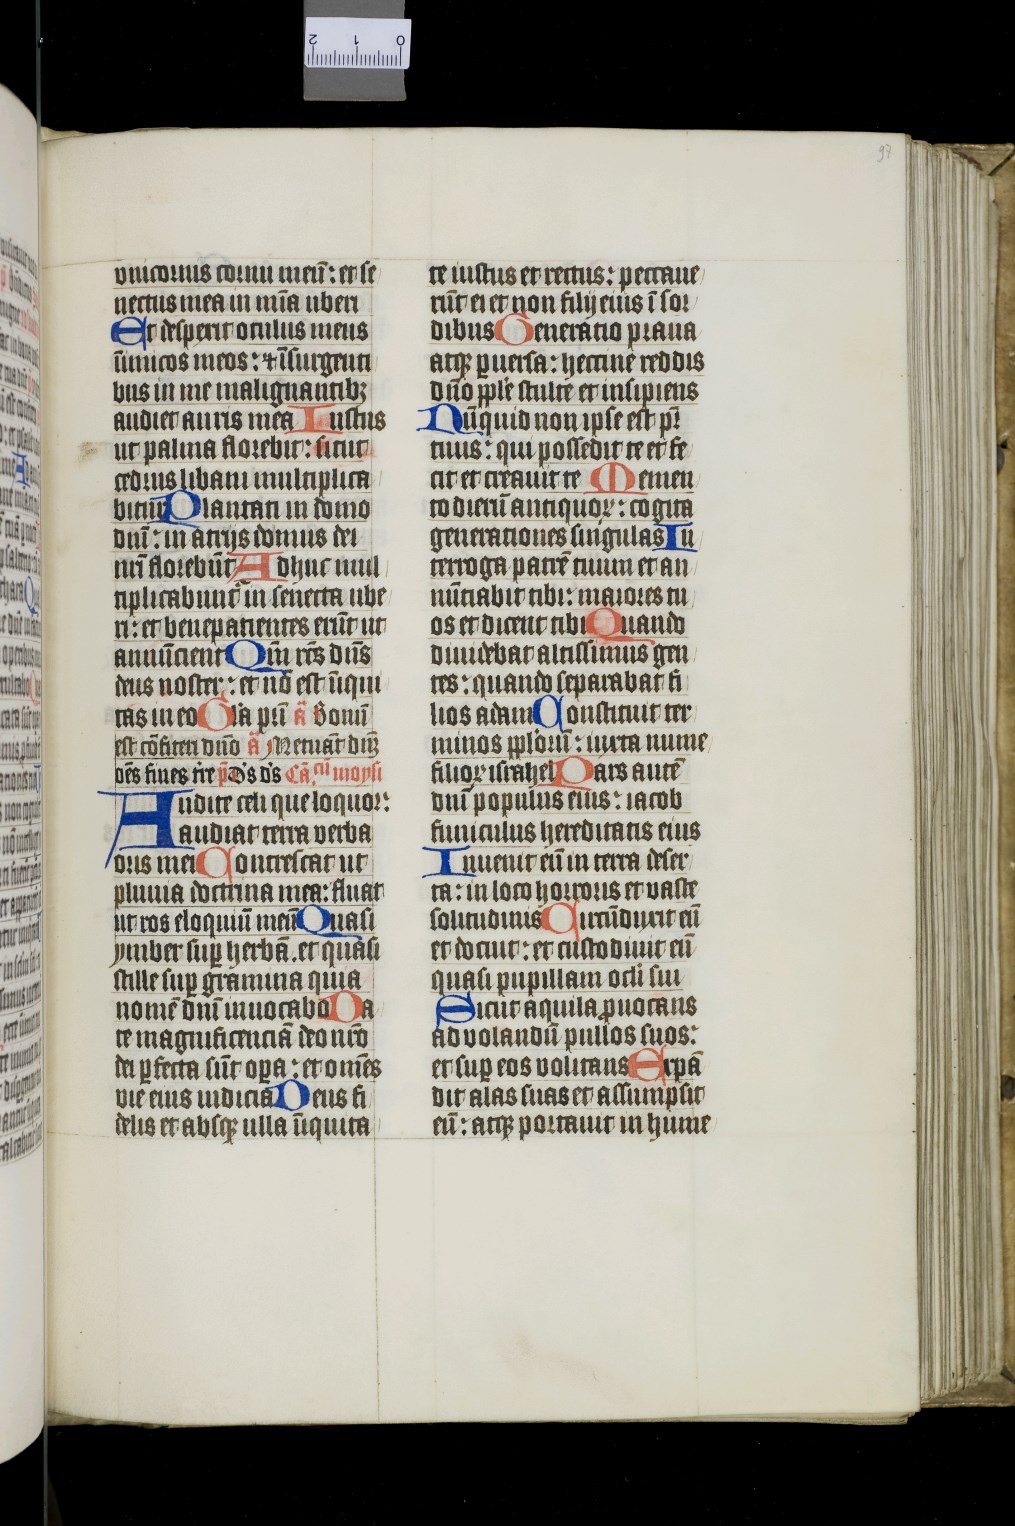 97
vnicornis cornu meū: et se
nectus mea in mīa uberi
Et despexit oculus meus
inīmicos meos: et īsurgenti
bus in me malignantibꝫ
audiet auris mea Iustus
ut palma florebit: sicut
cedrus libani multiplica
bitur Plantati in domo
dnī: in atrijs domus dei
nrī florebūt Adhuc mul
tiplicabunt in senecta ube
ri: et benepatientes erūt ut
annūcient Qm̄ rcs̄ dn̄s
deus noster: et nō est īiqui
tas in eo Glā pr̄i ā Bonū
est cōfiteri dnō ā Metuāt dnꝫ
oēs fines tr̄e p̄ Ds̄ ds̄ Cā.cū moysi
Audite celi que loquor:
audiat terra verba
oris mei Concrescat ut
pluuia doctrina mea: fluat
ut ros eloquiū meū Quasi
ymber suꝑ herbā. et quasi
stille suꝑ gramina quia
nomē dnī inuocabo Da
te magnificenciā deo nrō
dei ꝑfecta sūt oꝑa: et omēs
vie eius iudicia Deus fi
delis et absqꝫ ulla īiquita
te iustus et rectus: peccaue
rūt ei et non filij eius ī sor
dibus Generatio praua
atqꝫ ꝑuersa: heccine reddis
dnō pplē stulte et insipiens
Nūquid non ipse est pr̄
tuus: qui possedit te et fe
cit et creauit te Memen
to dierū antiquoꝝ: cogita
generationes singulas In
terroga patrē tuum et an
nūtiabit tibi: maiores tu
os et dicent tibi Quando
diuidebat altissimus gen
tes: quando separabat fi
lios adam Constituit ter
minos pplōrū: iuxta nume
filioꝝ israhel Pars autē
dnī populus eius: iacob
funiculus hereditatis eius
Inuenit eū in terra deser
ta: in loco horroris et vaste
solitudinis Circūduxit eū
et docuit: et custodiuit eū
quasi pupillam oclī sui
Sicut aquila ꝓuocans
ad volandū pullos suos:
et suꝑ eos volitans Expā
dit alas suas et assumpsit
eū: atqꝫ portauit in hume